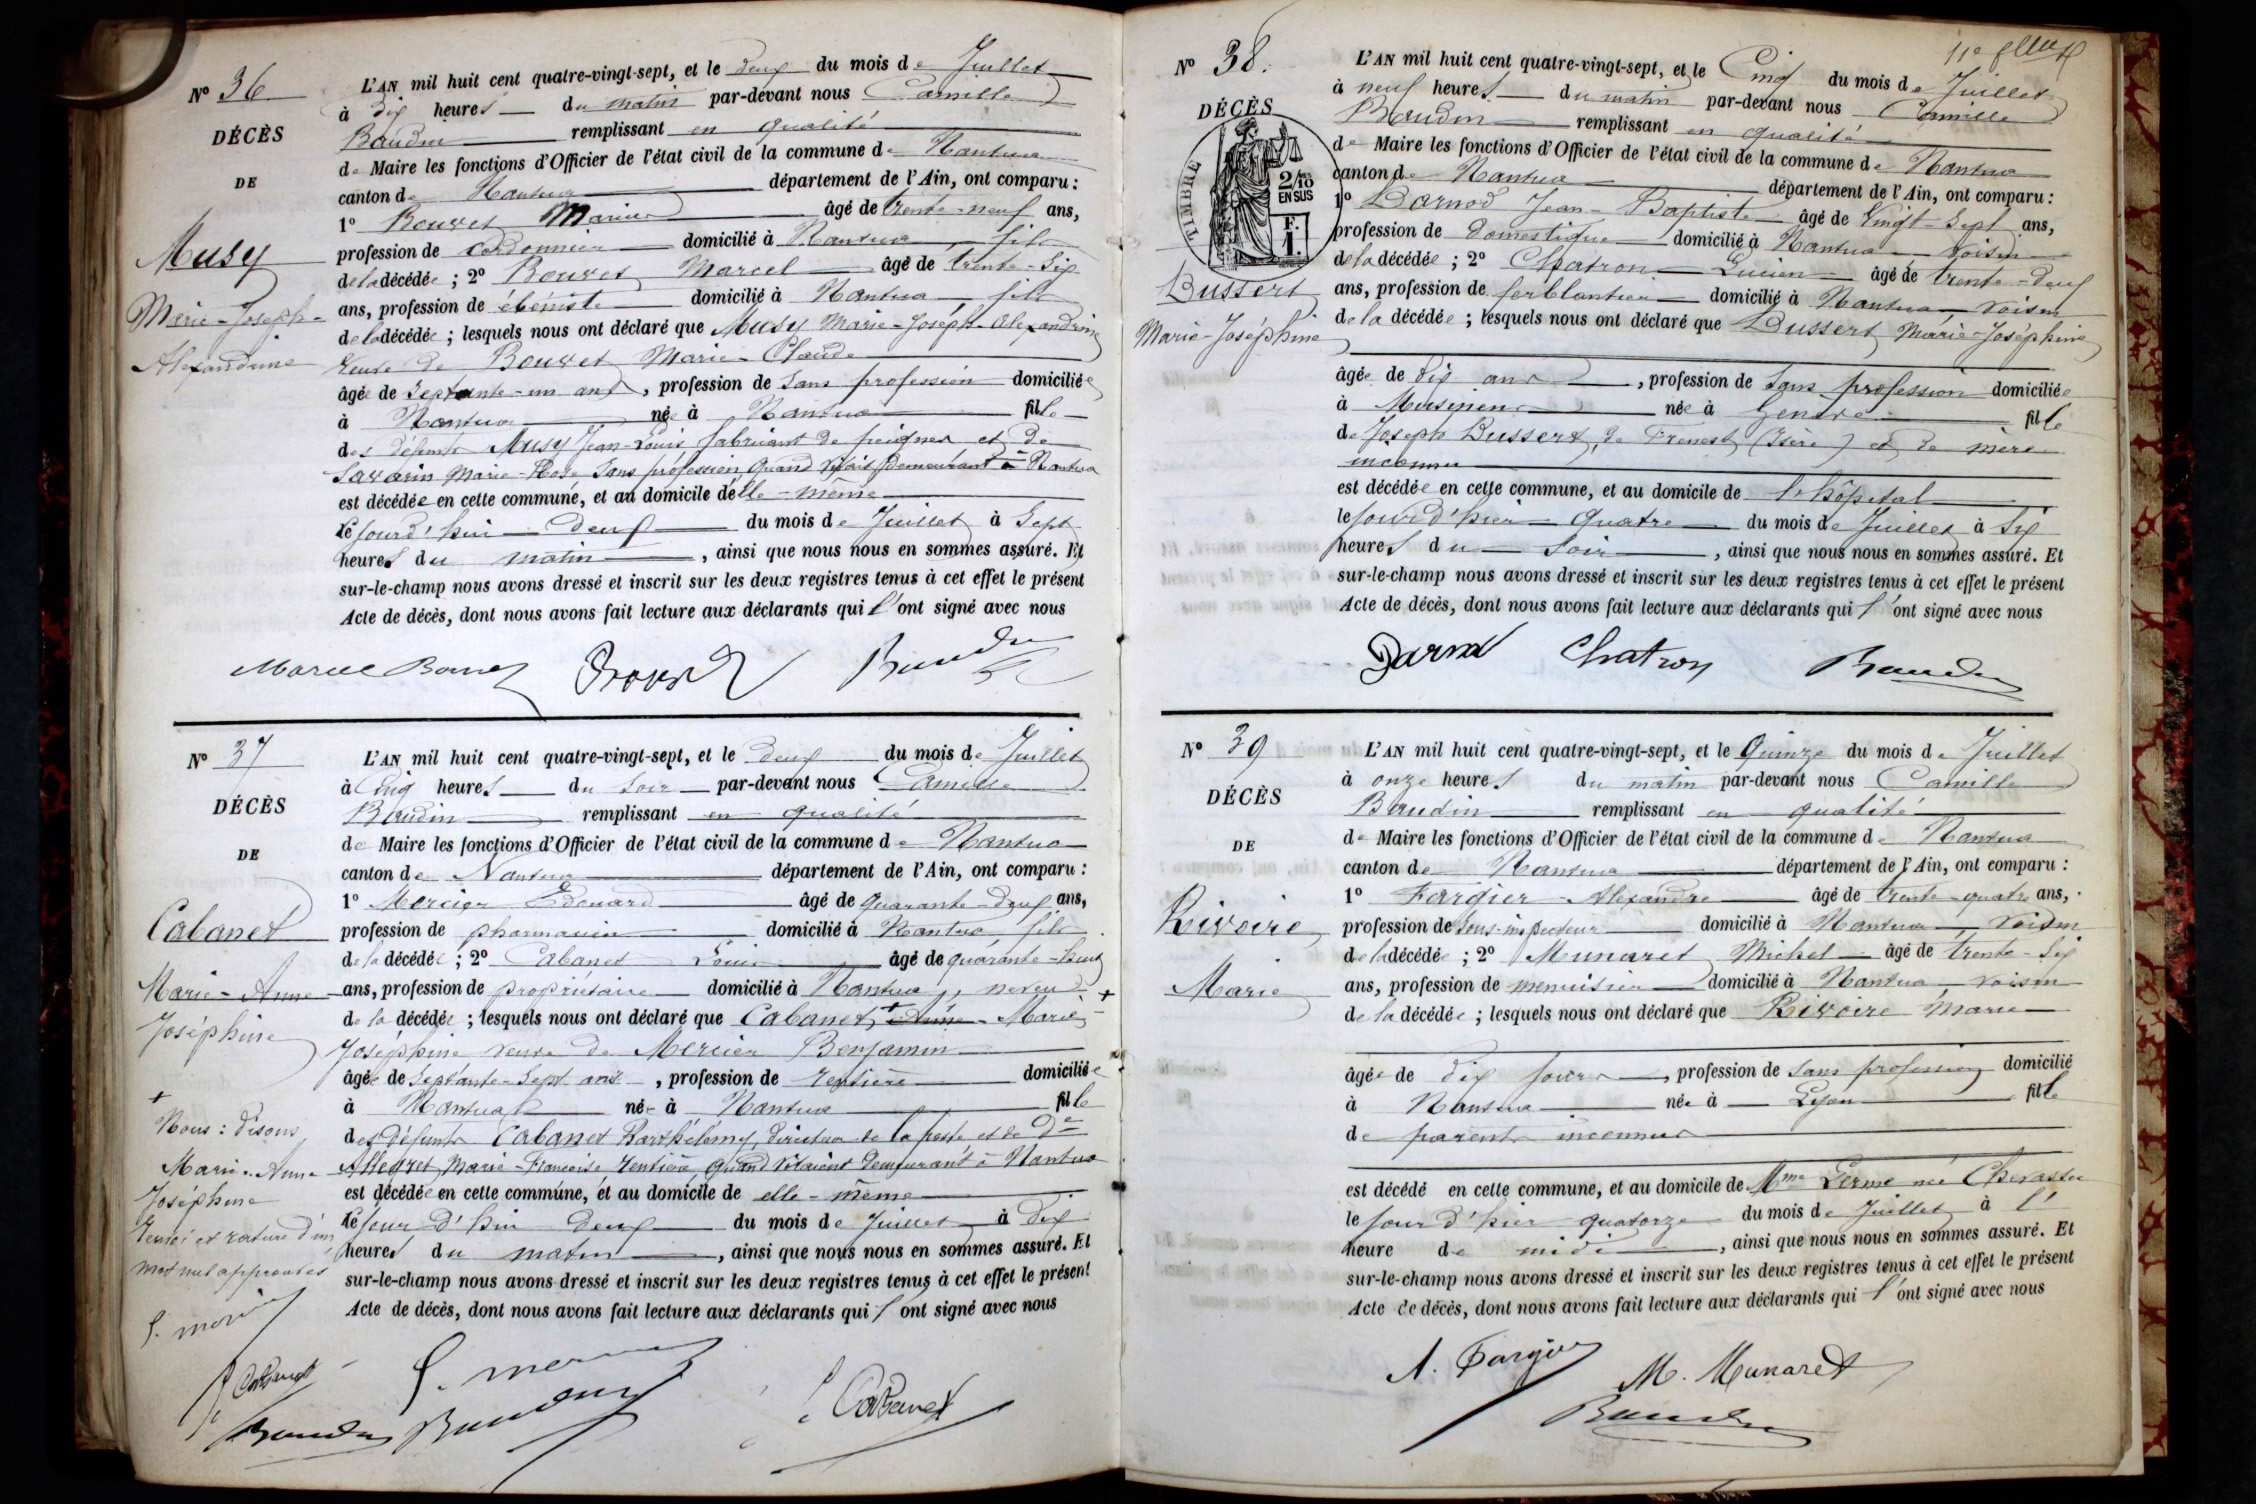 Nº 36
DÉCÈS
DE
Musy
Marie-Joseph-
Alexandrine
L'AN mil huit cent quatre-vingt-sept, et le deux du mois de Juillet
à dix heures du matin par-devant nous Camille
Baudin remplissant en qualité
de Maire les fonctions d'Officier de l'état civil de la commune de Nantua
canton de Nantua département de l'Ain, ont comparu :
1º Bouvet Marius âgé de trente-neuf ans,
profession de cordonnier domicilié à Nantua fils
de la décédée ; 2º Bouvet Marcel âgé de trente-six
ans, profession de ébéniste domicilié à Nantua, fils
de la décédée ; lesquels nous ont déclaré que Musy Marie-Joseph-Alexandrine
Veuve de Bouvet Marie-Claude
âgée de Septante-un ans, profession de Sans profession domiciliée
à Nantua née à Nantua fille
des défunts Musy Jean-Louis fabricant de peignes et de
Savarin Marie-Rose Sans profession quand vivait demeurant à Nantua
est décédée en cette commune, et au domicile d'elle-même
le jourd'hui deux du mois de Juillet à Sept
heures du matin, ainsi que nous nous en sommes assuré. Et
sur-le-champ nous avons dressé et inscrit sur les deux registres tenus à cet effet le présent
Acte de décès, dont nous avons fait lecture aux déclarants qui l'ont signé avec nous
Marcel Bouvet Bouvet Baudin
Nº 37
DÉCÈS
DE
Cabanet
Marie-Anne
Joséphine
+
Nous : disons
Marie-Anne
Joséphine
Renvoi et rature d'un
mot nul approuvés
L'AN mil huit cent quatre-vingt-sept, et le deux du mois de Juillet
à Cinq heures du soir par-devant nous Camille
Baudin remplissant en qualité
de Maire les fonctions d'Officier de l'état civil de la commune de Nantua
canton de Nantua département de l'Ain, ont comparu :
1º Mercier Edouard âgé de quarante-deux ans,
profession de pharmacien domicilié à Nantua fils
de la décédée ; 2º Cabanet Louis âgé de quarante-huit
ans, profession de propriétaire domicilié à Nantua, neveu
de la décédée ; lesquels nous ont déclaré que Cabanet, + Anne-Marie-
Joséphine veuve de Mercier Benjamin
âgée de Septante-Sept ans, profession de rentière domiciliée
à Nantua née à Nantua fille
des défunts Cabanet Barthélémy, directeur de la poste et de De
Allegret Marie-Françoise rentière, quand vivaient demeurant à Nantua
est décédée en cette commune, et au domicile de elle-même
le jour d'hui deux du mois de Juillet à dix
heures du matin, ainsi que nous nous en sommes assuré. Et
sur-le-champ nous avons dressé et inscrit sur les deux registres tenus à cet effet le présent
Acte de décès, dont nous avons fait lecture aux déclarants qui l'ont signé avec nous
Cabanet
Baudin Baudin Cabanet
Nº 38.
DÉCÈS
TIMBRE
2/10
EN SUS
F.
1.
Bussert
Marie-Joséphine
L'AN mil huit cent quatre-vingt-sept, et le Cinq du mois de Juillet
à neuf heures du matin par-devant nous Camille
Baudin remplissant en qualité
de Maire les fonctions d'Officier de l'état civil de la commune de Nantua
canton de Nantua département de l'Ain, ont comparu :
1º Darnod Jean-Baptiste âgé de Vingt-Sept ans,
profession de domestique domicilié à Nantua voisin
de la décédée ; 2º Chatron Lucien âgé de trente-deux
ans, profession de ferblantier domicilié à Nantua, voisin
de la décédée ; lesquels nous ont déclaré que Bussert Marie-Joséphine
âgée de dix ans, profession de Sans profession domiciliée
à Musinens née à Genève fille
de Joseph Bussert, de (Isère) et de mère
inconnue
est décédée en cette commune, et au domicile de l'hôpital
le jour d'hier quatre du mois de Juillet à six
heures du soir, ainsi que nous nous en sommes assuré. Et
sur-le-champ nous avons dressé et inscrit sur les deux registres tenus à cet effet le présent
Acte de décès, dont nous avons fait lecture aux déclarants qui l'ont signé avec nous
Darnod Chatron Baudin
Nº 39
DÉCÈS
DE
Rivoire
Marie
L'AN mil huit cent quatre-vingt-sept, et le Quinze du mois de Juillet
à onze heures du matin par-devant nous Camille
Baudin remplissant en qualité
de Maire les fonctions d'Officier de l'état civil de la commune de Nantua
canton de Nantua département de l'Ain, ont comparu :
1º Fargier Alexandre âgé de trente-quatre ans,
profession de Sous-inspecteur domicilié à Nantua voisin
de la décédée ; 2º Munaret Michel âgé de trente-six
ans, profession de menuisier domicilié à Nantua voisin
de la décédée ; lesquels nous ont déclaré que Rivoire Marie
âgée de dix jours, profession de Sans profession domicilié
à Nantua née à Lyon fille
de parents inconnus
est décédé en cette commune, et au domicile de Mme née
le jour d'hier quatorze du mois de Juillet à l'
heure de midi, ainsi que nous nous en sommes assuré. Et
sur-le-champ nous avons dressé et inscrit sur les deux registres tenus à cet effet le présent
Acte de décès, dont nous avons fait lecture aux déclarants qui l'ont signé avec nous
A. Fargier M. Munaret
Baudin